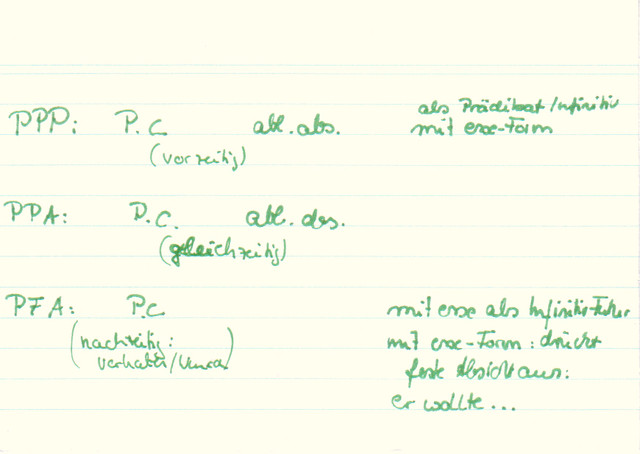 als Prädikat/Infinitiv
PPP: P.C abl. abs. mit esse-Form
(vorzeitig)
PPA: P.C. abl. abs.
(gleichzeitig)
PFA: P.C mit esse als Infinitiv-Futur
(nachzeitig: mit esse-Form: drückt
feste Absicht aus:
er wollte...